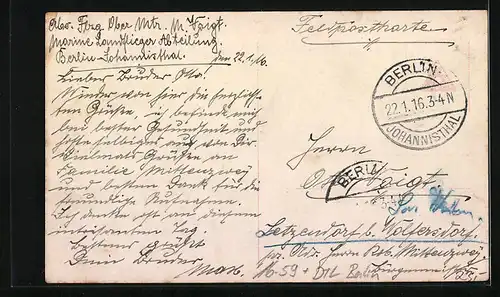 Abs. Flzg. Ober Mtr. M. Voigt.
Marine Landflieger Abteilung
Berlin-Johannisthal.
den 22.1.16.
Lieber Bruder Otto!
Wieder von hier die herzlichsten
Grüße, ich befinde mich
bei bester Gesundheit und
hoffe selbiges auch von Dir.
Vielmals Grüße an
Familie Mittenzwey
und besten Dank für die
freundliche Aufnahme.
Ich denke oft an diesen
interessanten Tag.
Bestens grüßt
Dein Bruder
Max.
Feldpostkarte
BERLIN-
22.1.16.3-4N
JOHANNISTHAL
Herrn
Otto Voigt
BERLIN
Letzendorf b. Woltersdorf.
Herrn Rob. Mittenzwey
Bürgermeister
Mo 59 + DTL Berlin